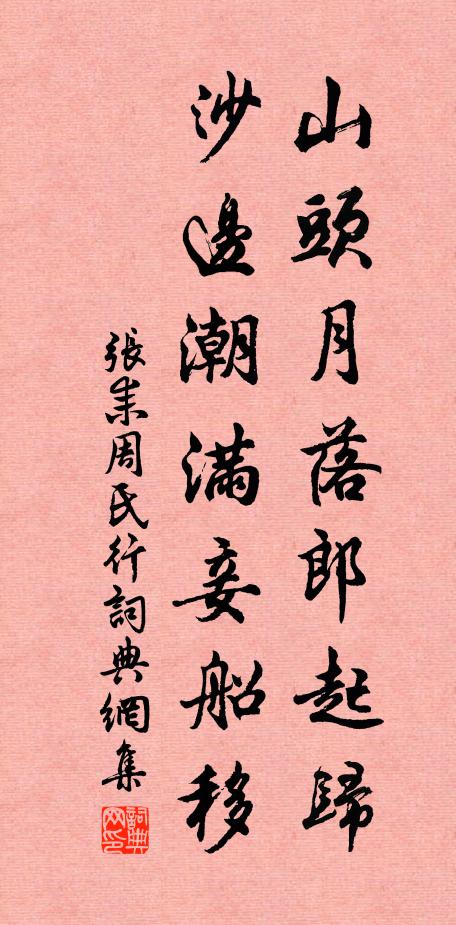 山頭月落郎起歸
沙邊潮滿妾船移
張耒周氏行詞典網集
詞典网印